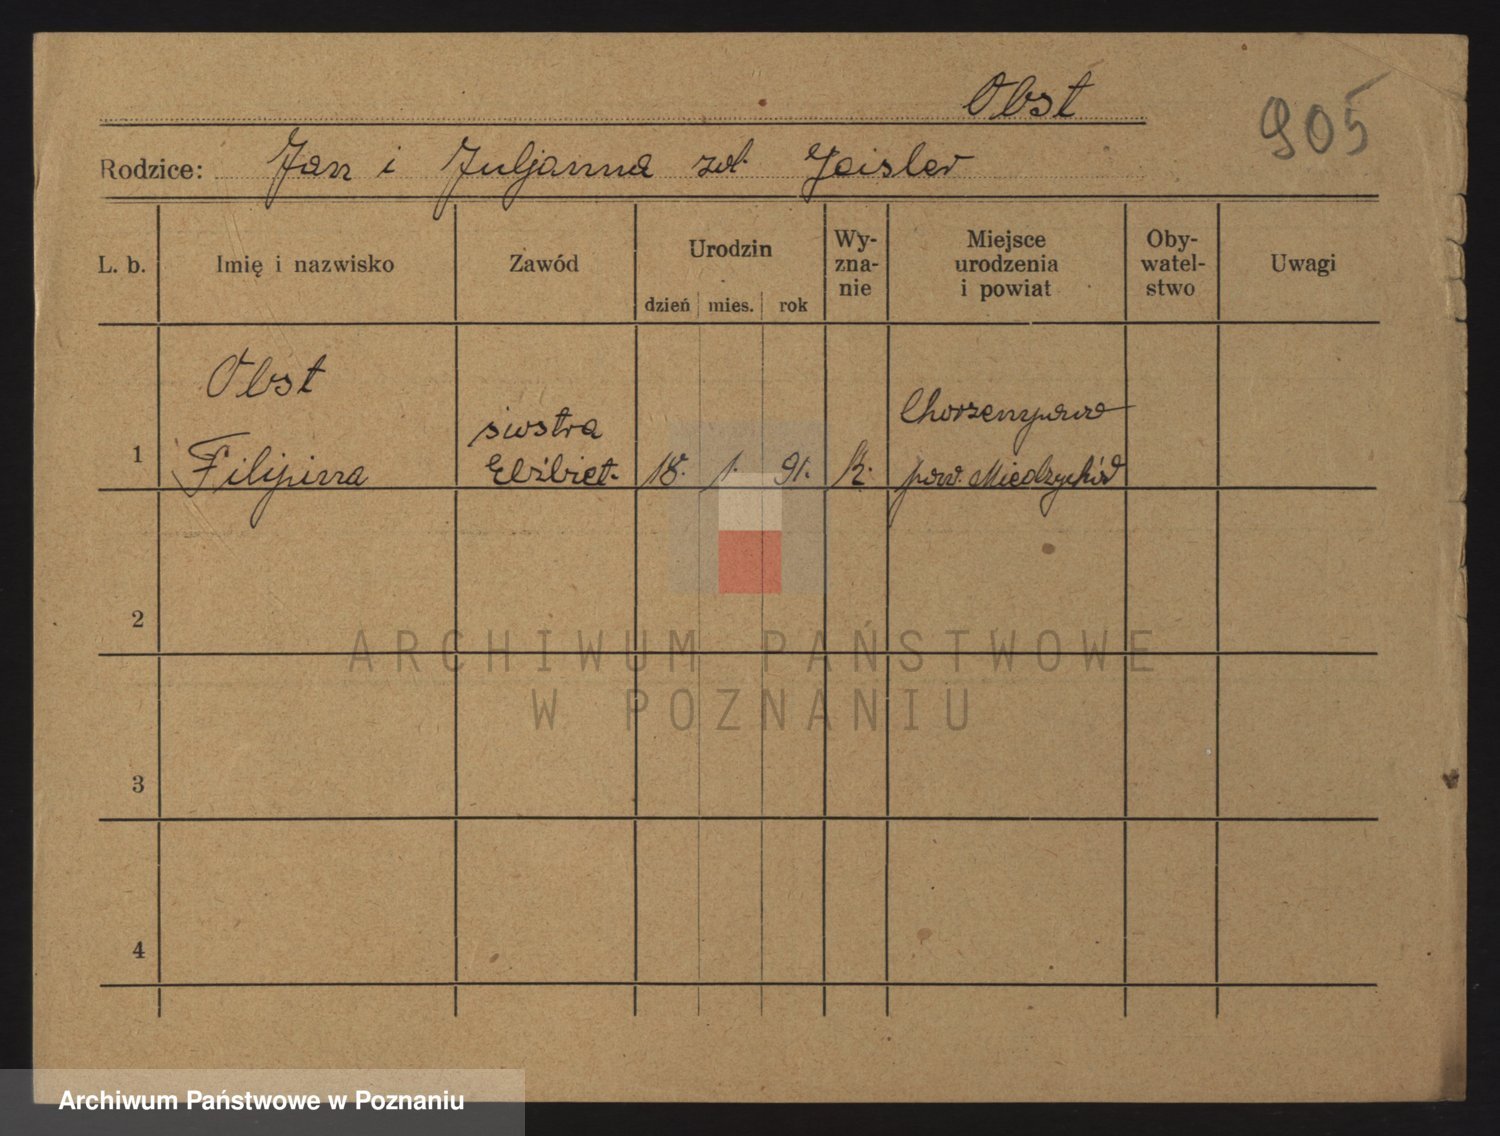 Obst
905
Rodzice: Jan i Juljanna zd. Geisler
L. b.
Imię i nazwisko
Zawód
Urodzin
dzień mies. rok
Wy-
zna-
nie
Miejsce
urodzenia
i powiat
Oby-
watel-
stwo
Uwagi
Obst
1 Filipina
siostra
Elżbiet. 18. 1. 91. k.
pow. Miedzychód
2
3
4
ARCHIWUM PAŃSTWOWE
W POZNANIU
Archiwum Państwowe w Poznaniu